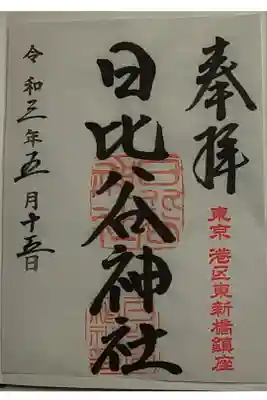 奉拝
東京港区東新橋鎮座
日比谷神社
令和三年五月十五日